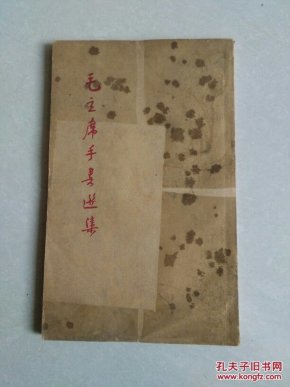 毛主席手書选集
孔夫子旧书网
www.kongfz.com